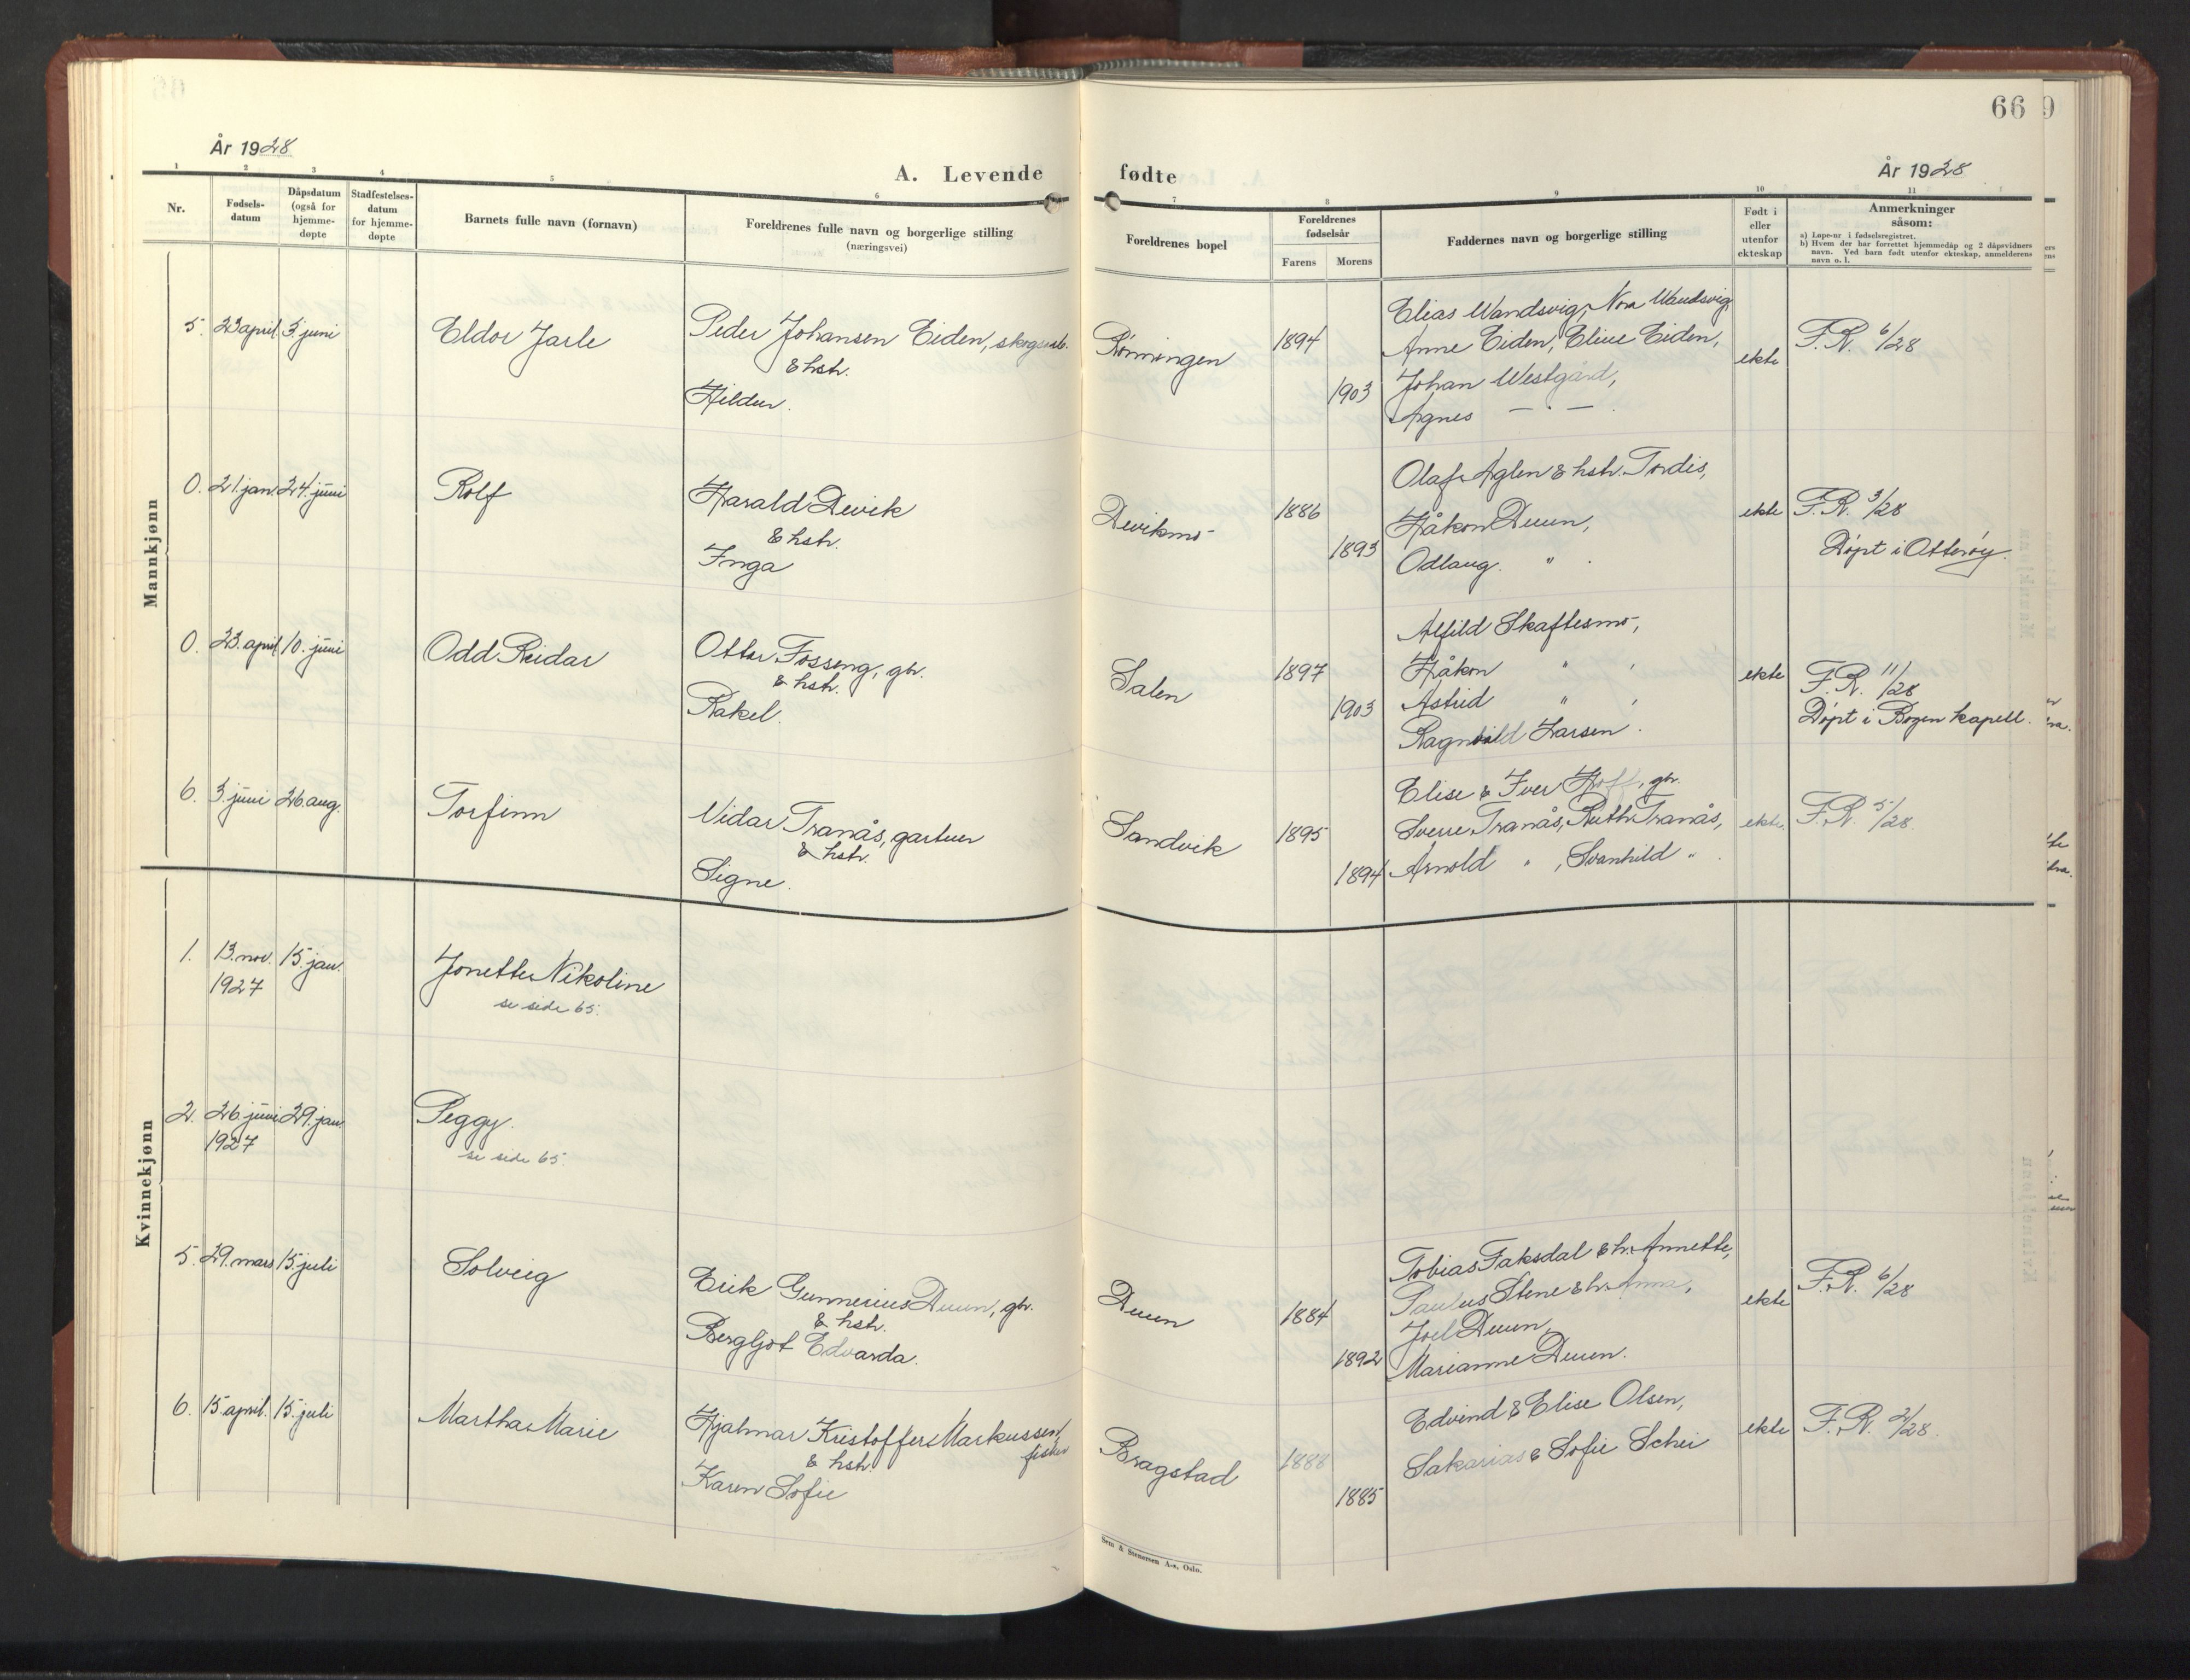 66
9
År 1928
A. Levende fødte
År 1928
1 2 3 4 5 6 7 8 9 10 11
Nr.
Fødsels-
datum
Dåpsdatum
(også for
hjemme-
døpte
Stadfestelses-
datum
for hjemme-
døpte
Barnets fulle navn (fornavn)
Foreldrenes fulle navn og borgerlige stilling
(næringsvei)
Foreldrenes bopel
Foreldrenes
fødselsår
Farens Morens
Faddernes navn og borgerlige stilling
Født i
eller
utenfor
ekteskap
Anmerkninger
såsom:
a) Løpe-nr i fødselsregistret.
b) Hvem der har forrettet hjemmedåp og 2 dåpsvidners
navn. Ved barn født utenfor ekteskap, anmelderens
navn o. l.
Mannkjønn
5. 23 april 3 juni Eldor Jarle
Peder Johansen Eiden, skogsarb.
& hstr.
Hildur.
Rønningen 1894
1903
Elias Wandsvig, Nora Wandsvig,
Anne Eiden, Eline Eiden,
Johan Westgård,
Agnes — " — .
ekte F.R. 6/28
0. 21. jan. 24. juni Rolf
Harald Devik
& hstr.
Inga
Devikmo 1886
1893
Olaf Aglen & hstr. Tordis,
Håkon Duun,
Odlaug. " .
ekte F.R. 3/28
Døpt i Otterøy.
0. 23. april 10. juni Odd Reidar
Ottar Fosseng, gbr.
& hstr.
Rakel.
Salen 1897
1903
Alfild Skaftesmo,
Håkon " ,
Astrid " ,
Ragnhild Larsen .
ekte F.R. 11/28
Døpt i Bogen kapell.
6. 3. juni 26. aug. Torfinn
Vidar Tranås, gartner
& hstr.
Signe.
Sandvik 1895
1894
Elise & Iver Hoff, gbr.
Sverre Tranås, Ruth Tranås,
Arnold " , Svanhild " .
ekte. F.R. 5/28
Kvinnekjønn
1. 13. nov. 15. jan. Jonette Nikoline
1927
se side 65.
2. 26. juni 29. jan. Peggy.
1927
se side 65.
5. 29. mars 15. juli Solveig
Erik Gunnerius Duun, gbr.
& hstr.
Bergljot Edvarda.
Duun 1884
1892
Tobias Faksdal & hr. Annette,
Paulus Stene & hr. Anna,
Joel Duun,
Marianne Duun.
ekte F.R. 6/28
6. 15. april. 15. juli Martha Marie
Hjalmar Kristoffer Markussen,
fisker
& hstr.
Karen Sofie
Bragstad 1888
1885
Edvind & Elise Olsen,
Sakarias & Sofie Schei
ekte F.R. 2/28.
Sem & Stenersen A-s, Oslo.